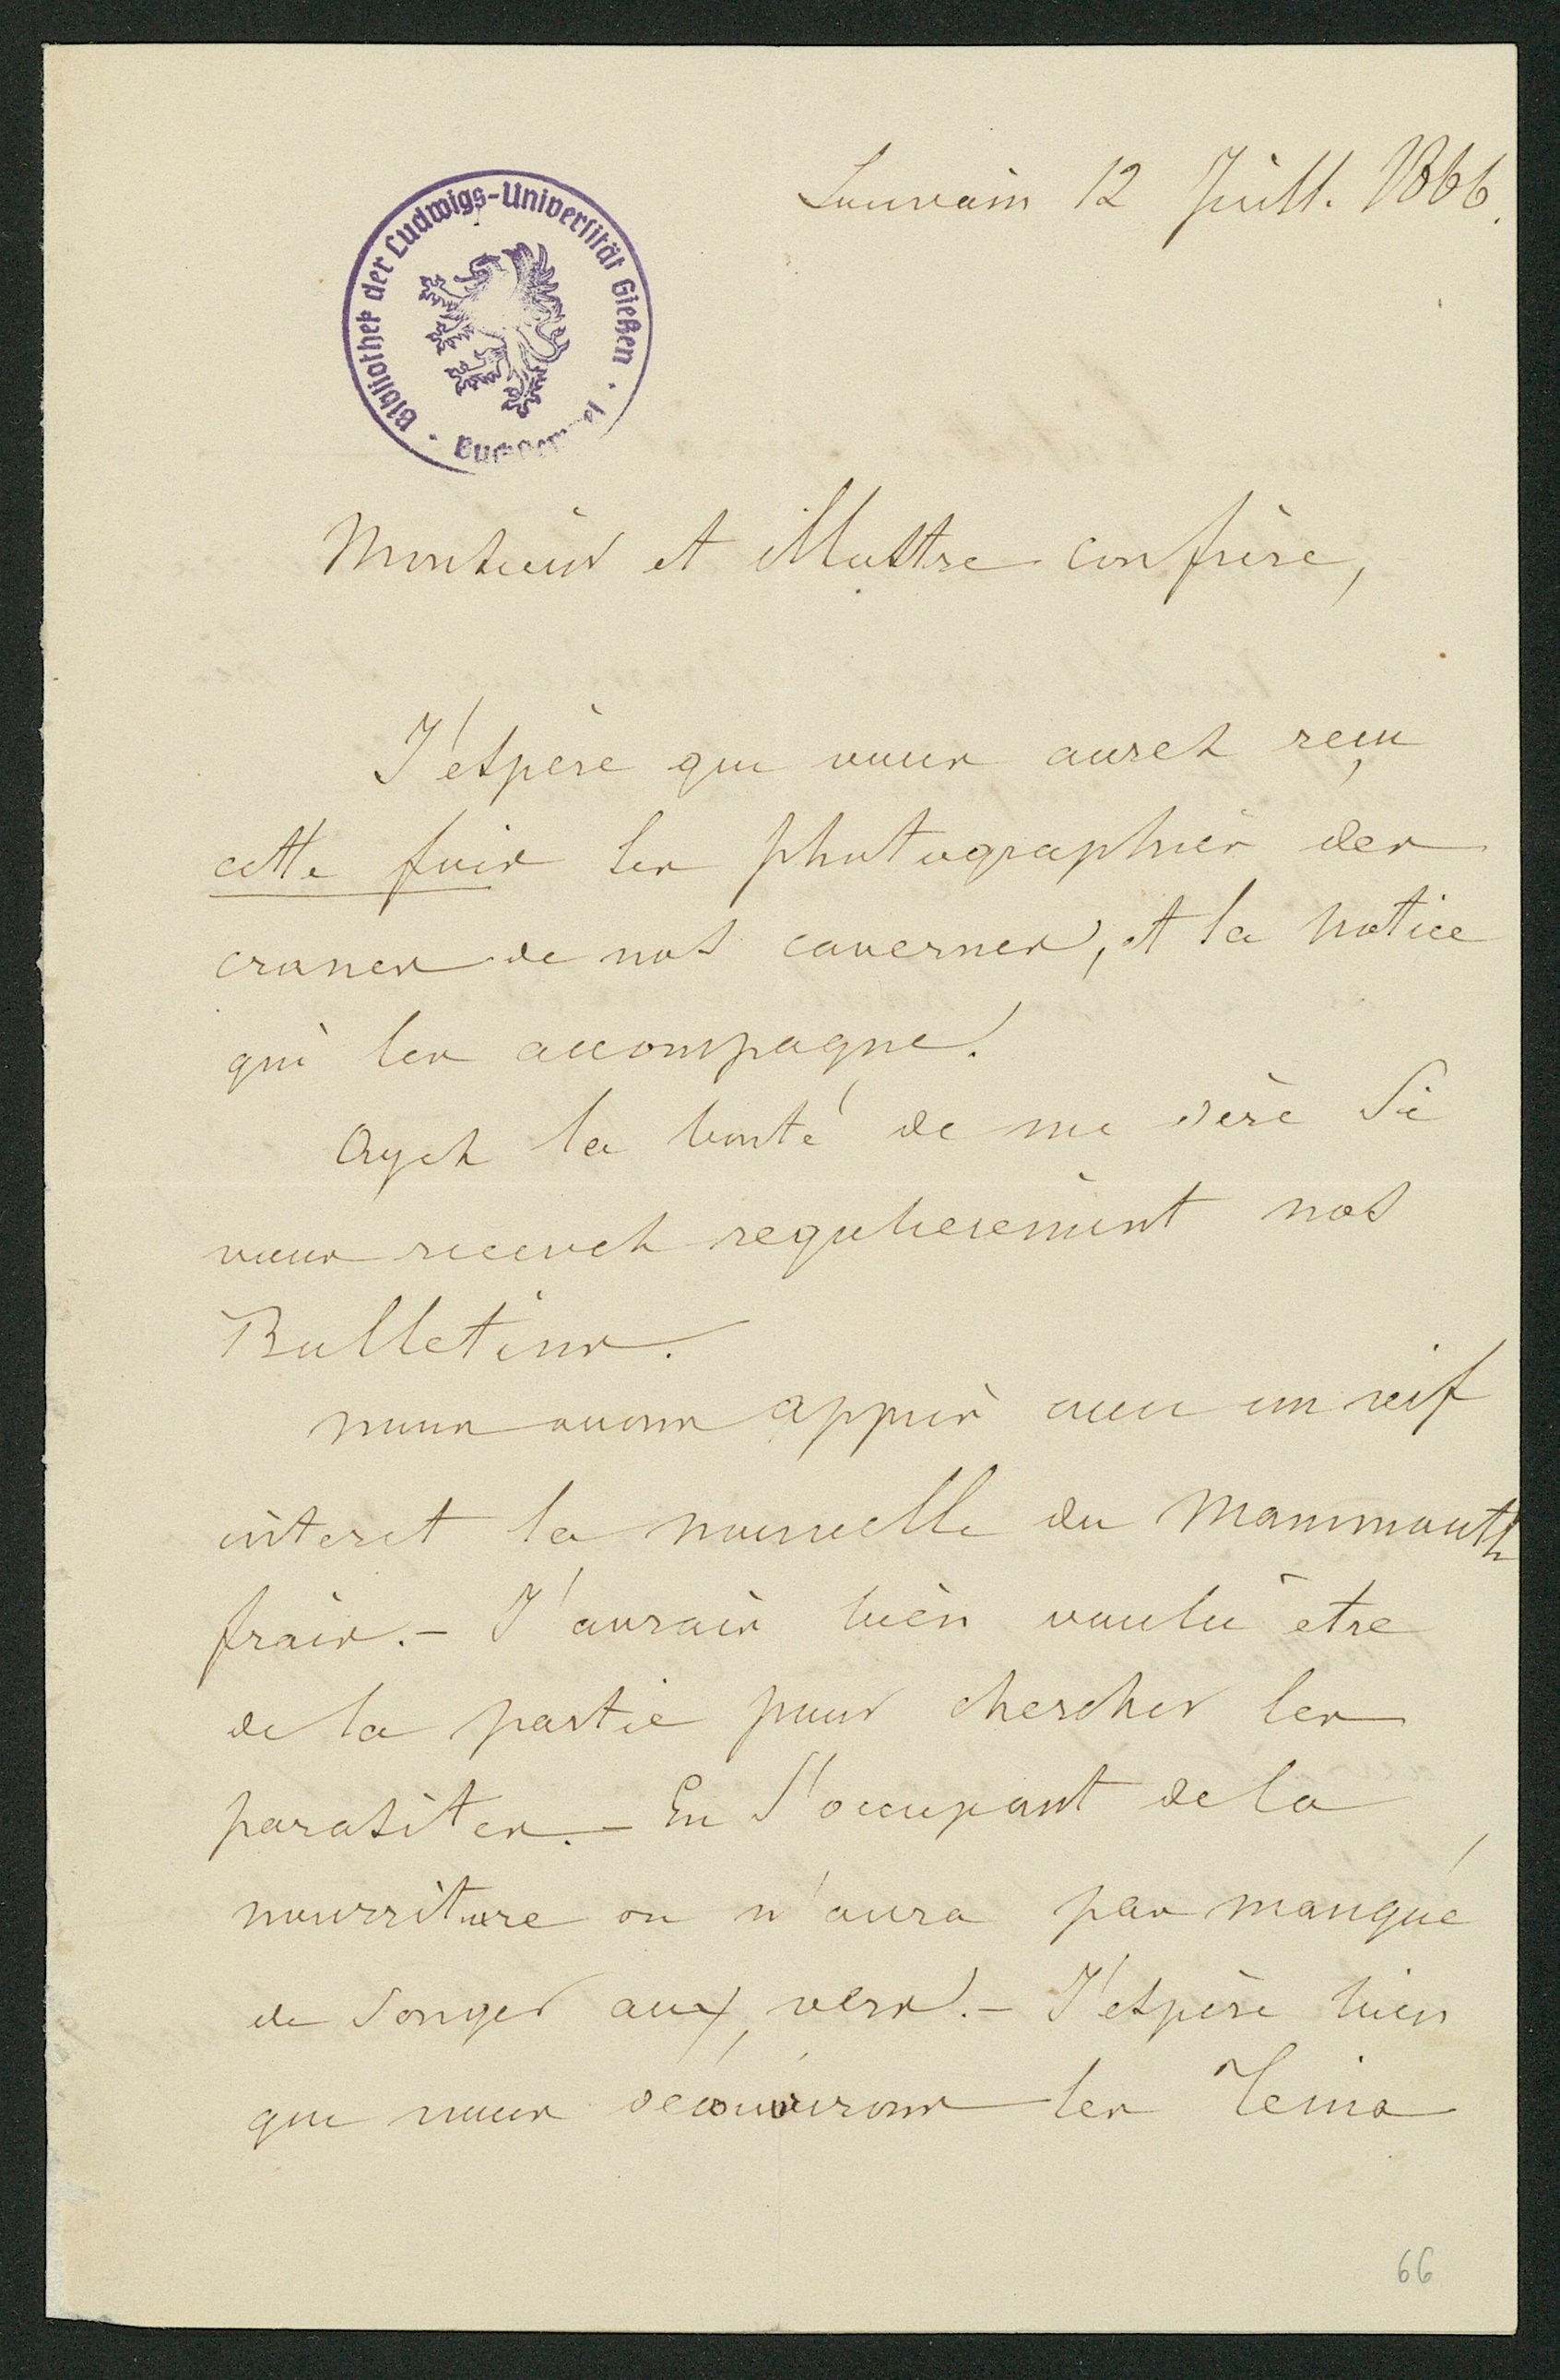 Louvain 12 Juill. 1866.
Bibliothek der Ludwigs-Universität Gießen
Monsieur et illustre confrère,
J'espère que vous aurez reçu
cette fois les photographies des
cranes de nos cavernes, et la notice
qui les accompagne.
Ayez la bonté de me dire si
vous recevez regulierement nos
Bulletins.
nous avons appris avec un vif
interet la nouvelle du Mammouth
frais. - J'aurais bien voulu être
de la partie pour chercher les
parasites. - En s'occupant de la
nourriture on n'aura pas manqué
de songer aux vers. - J'espère bien
que nous découvrirons les Tenia
66